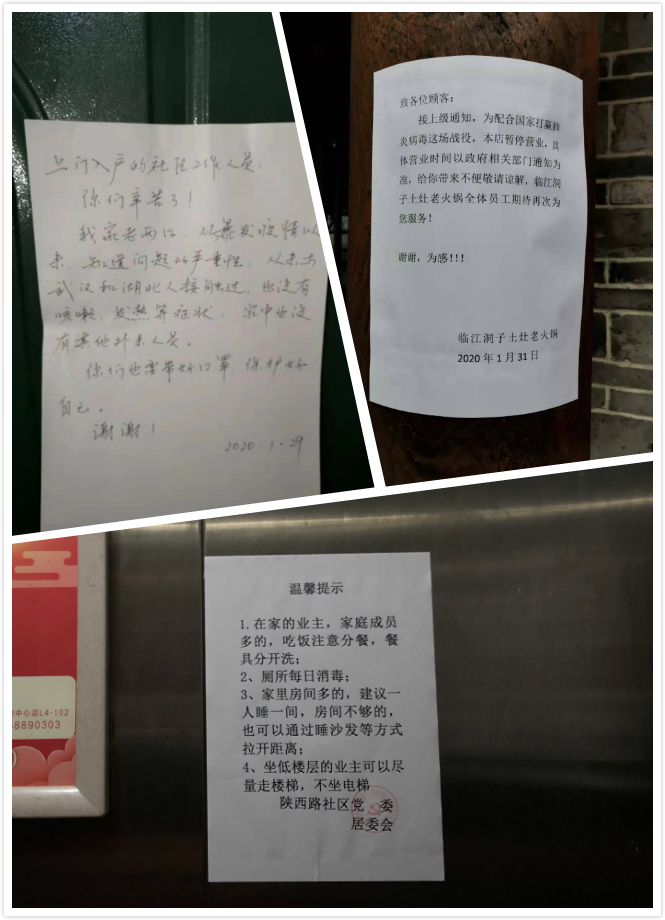 上门入户的社区工作人员：
你们辛苦了！
我家老两口，从暴发疫情以
来，知道问题的严重性，从未与
武汉和湖北人接触过，也没有
咳嗽、发热等症状，家中也没
有其他外来人员。
你们也要带好口罩，保护好
自己。
谢谢！
2020.1.29
致各位顾客：
接上级通知，为配合国家打赢肺
炎病毒这场战役，本店暂停营业，具
体营业时间以政府相关部门通知为
准，给你带来不便敬请谅解，临江洞
子土灶老火锅全体员工期待再次为
您服务！
谢谢，为感！！！
临江洞子土灶老火锅
2020 年 1 月 31 日
温馨提示
1.在家的业主，家庭成员
多的，吃饭注意分餐，餐
具分开洗；
2、厕所每日消毒；
3、家里房间多的，建议一
人睡一间，房间不够的，
也可以通过睡沙发等方式
拉开距离；
4、坐低楼层的业主可以尽
量走楼梯，不坐电梯
陕西路社区党 委
居委会
中心店L4-102
8890303